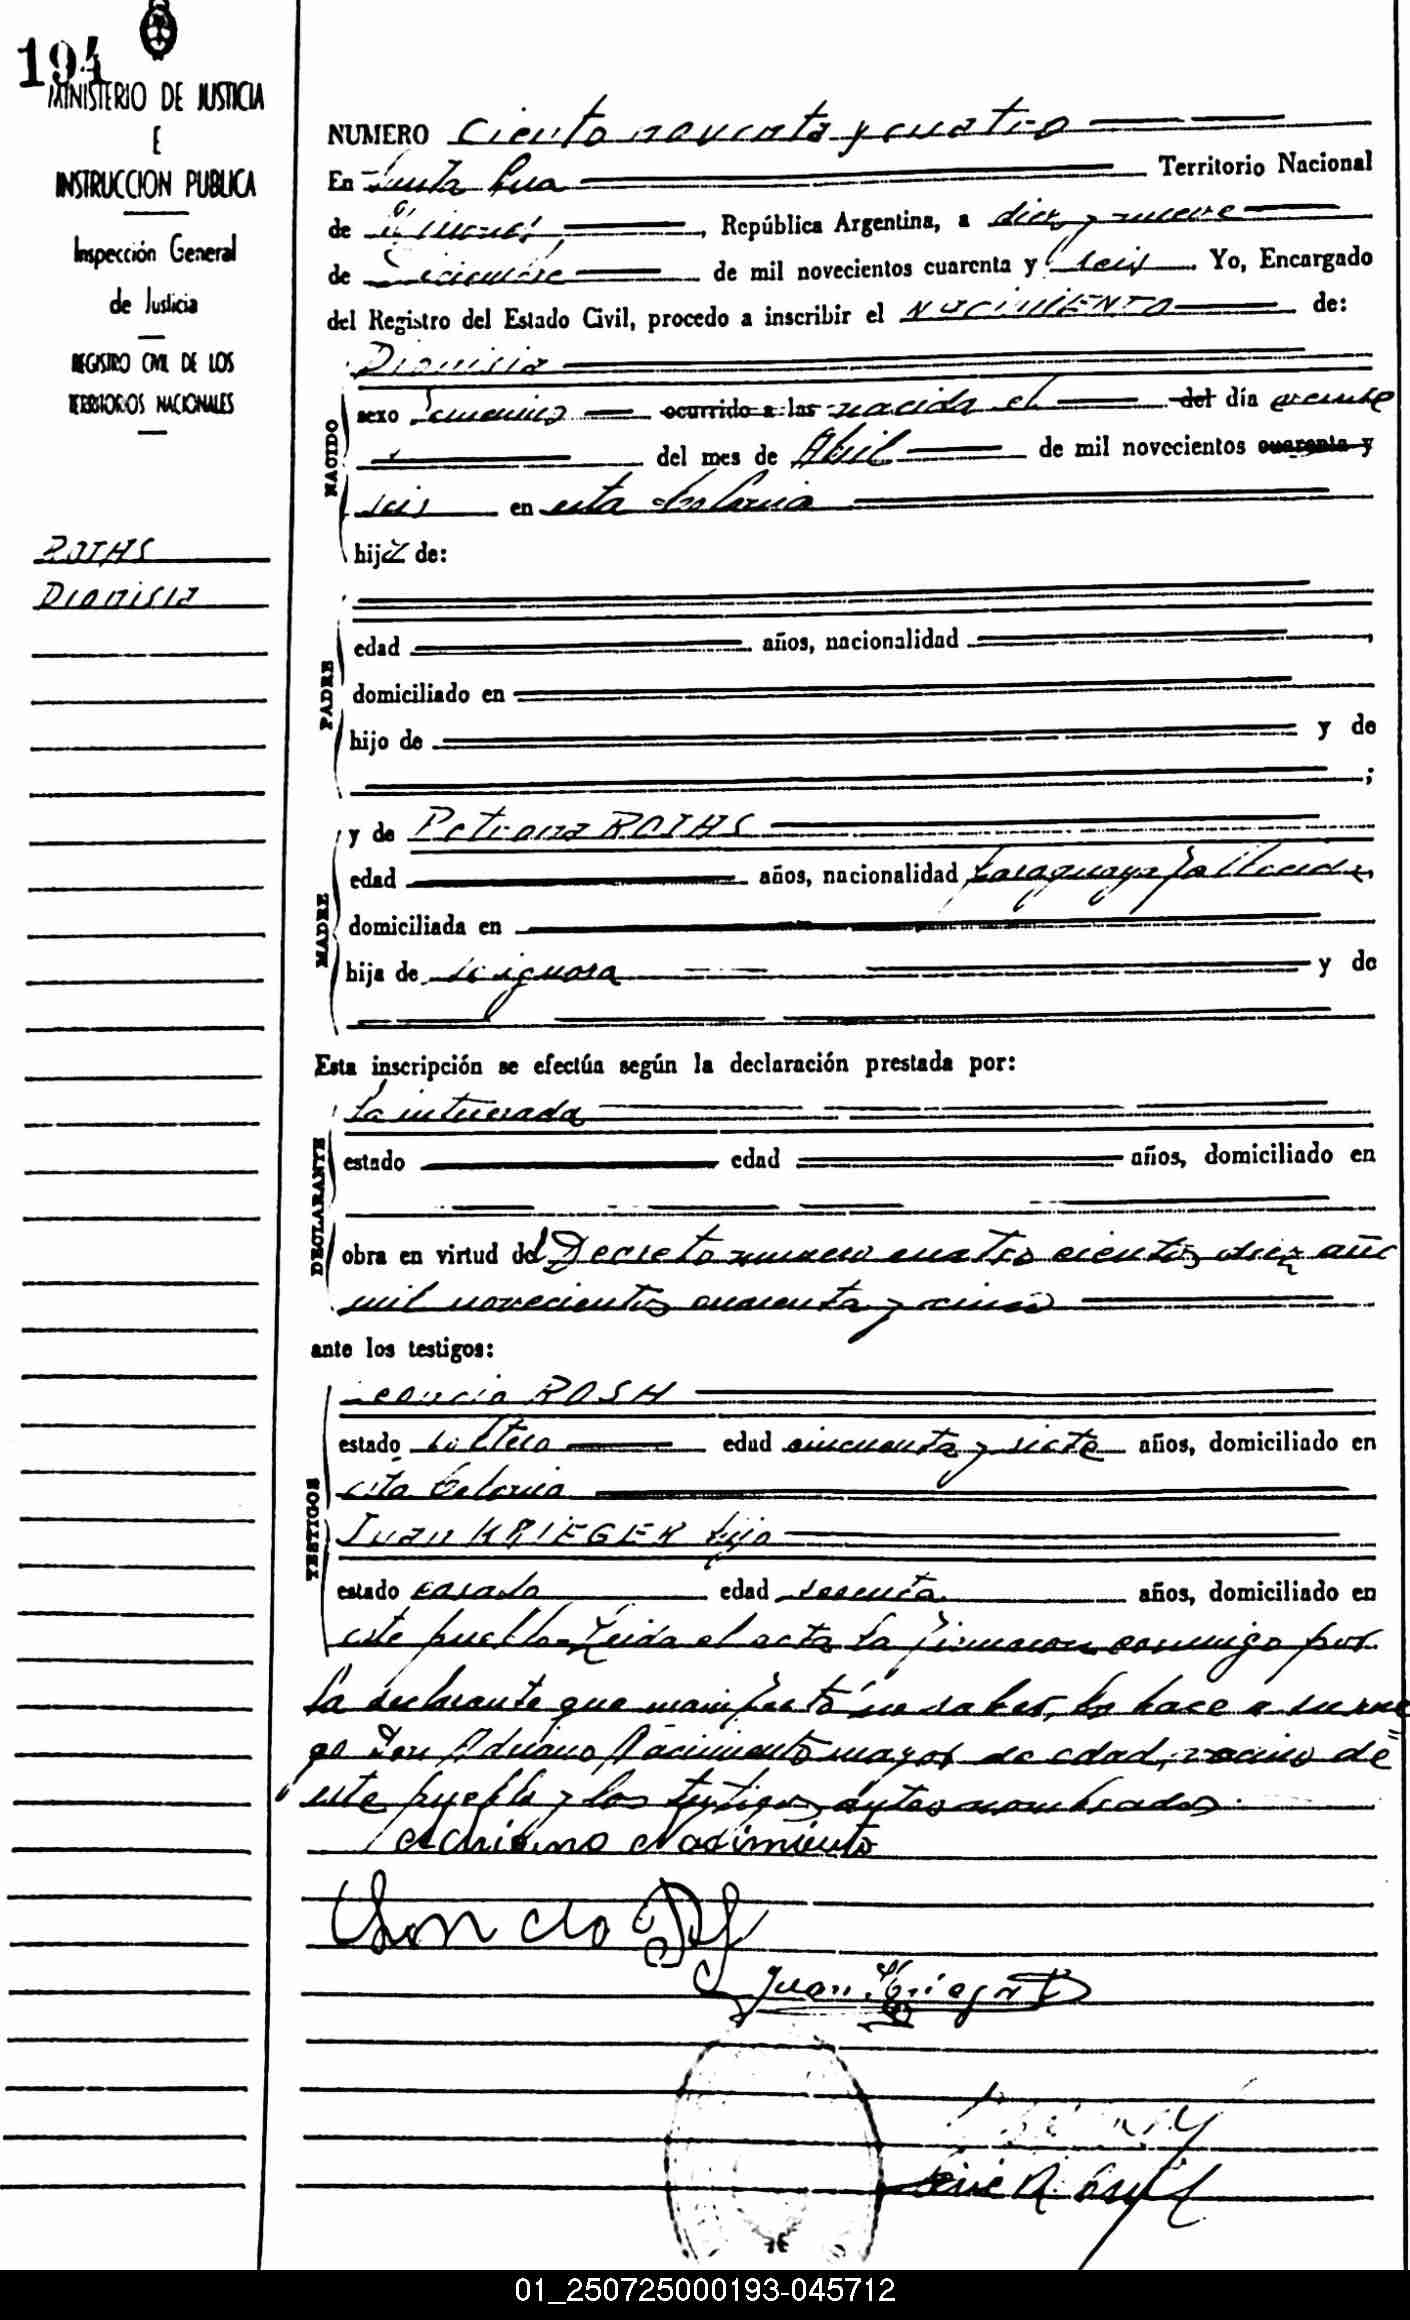 194
MINISTERIO DE JUSTICIA
E
INSTRUCCION PUBLICA
Inspección General
de Justicia
REGISTRO CIVIL DE LOS
TERRITORIOS NACIONALES
ROJAS
Dionisia
NUMERO Ciento noventa y cuatro
En Santa Ana Territorio Nacional
de Misiones, República Argentina, a diez y nueve
de Diciembre de mil novecientos cuarenta y seis. Yo, Encargado
del Registro del Estado Civil, procedo a inscribir el NACIMIENTO de:
NACIDO
Dionisia
sexo femenino ocurrido a las nacida el del día veinte
del mes de Abril de mil novecientos cuarenta y
seis en esta Colonia
hija de:
PADRE
edad años, nacionalidad ,
domiciliado en
hijo de y de
;
MADRE
y de Petrona ROJAS
edad años, nacionalidad paraguaya fallecida,
domiciliada en
hija de se ignora y de
Esta inscripción se efectúa según la declaración prestada por:
DECLARANTE
La interesada
estado edad años, domiciliado en
obra en virtud del Decreto numero cuatro cientos diez año
mil novecientos cuarenta y cinco
ante los testigos:
TESTIGOS
Leoncio ROSH
estado soltero edad cincuenta y siete años, domiciliado en
esta Colonia
Juan KRIEGER hijo
estado casado edad sesenta años, domiciliado en
este pueblo Leida el acta la firmaron conmigo por
la declarante que manifestó no saber, lo hace a su rue
go Don Adriano Nacimiento mayor de edad, vecino de
este pueblo y los testigos antes nombrados.
Adriano Nacimiento
Leoncio
Juan Krieger
01_250725000193-045712